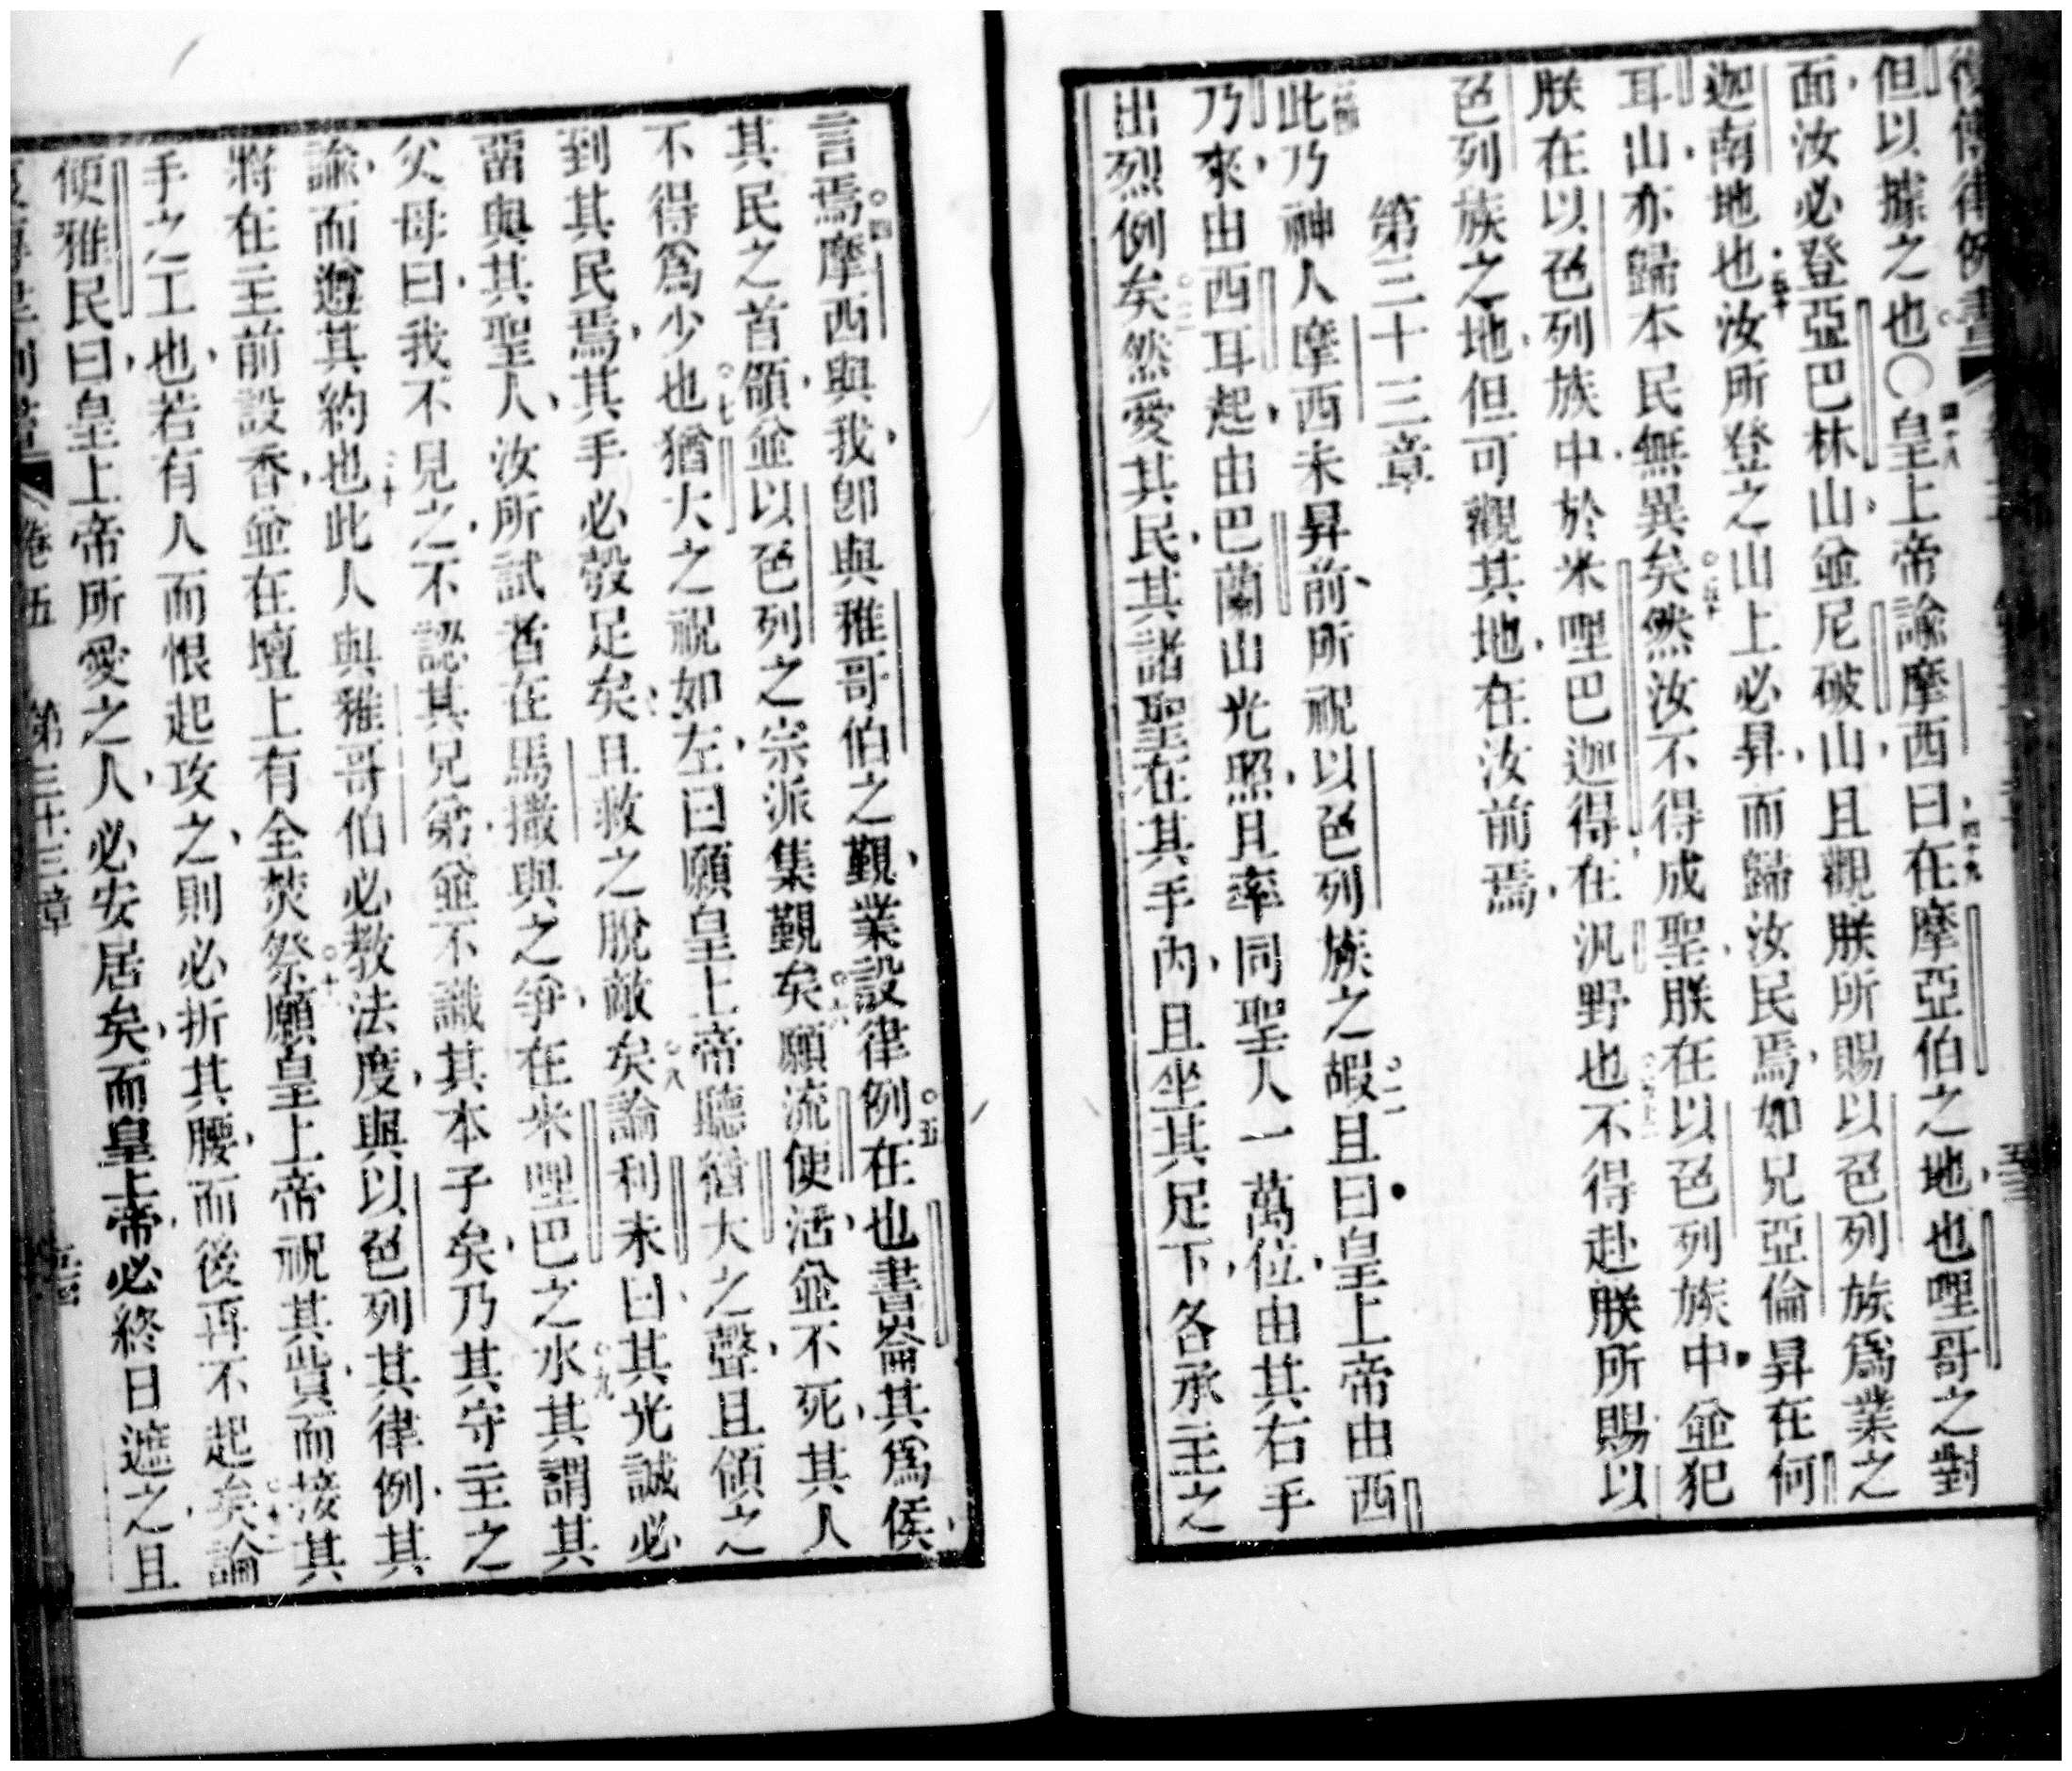 復傳律例書
但以據之也〇四十八皇上帝諭摩西曰四十九在摩亞伯之地也哩哥之對
面汝必登亞巴林山並尼破山且觀朕所賜以色列族爲業之
迦南地也五十汝所登之山上必昇而歸汝民焉如兄亞倫昇在何
耳山亦歸本民無異矣五十一然汝不得成聖朕在以色列族中並犯
朕在以色列族中於米哩巴迦得在汎野也五十二不得赴朕所賜以
色列族之地但可觀其地在汝前焉
第三十三章
一節此乃神人摩西未昇前所祝以色列族之嘏二且曰皇上帝由西
乃來由西耳起由巴蘭山光照且率同聖人一萬位由其右手
出烈例矣三然愛其民其諸聖在其手內且坐其足下各承主之
言焉四摩西與我卽與雅哥伯之覲業設律例在也五書崙其爲侯
其民之首領並以色列之宗派集覲矣六願流使活並不死其人
不得爲少也七猶大之祝如左曰願皇上帝聽猶大之聲且領之
到其民焉其手必彀足矣且救之脫敵矣八論利未曰其光誠必
畱與其聖人汝所試者在馬撒與之爭在米哩巴之水九其謂其
父母曰我不見之不認其兄弟並不識其本子矣乃其守主之
諭而遵其約也十此人與雅哥伯必教法度與以色列其律例其
將在主前設香並在壇上有全焚祭十一願皇上帝祝其貲而接其
手之工也若有人而恨起攻之則必折其腰而後再不起矣十二論
便雅民曰皇上帝所愛之人必安居矣而皇上帝必終日遮之且
卷五 第三十三章 五四